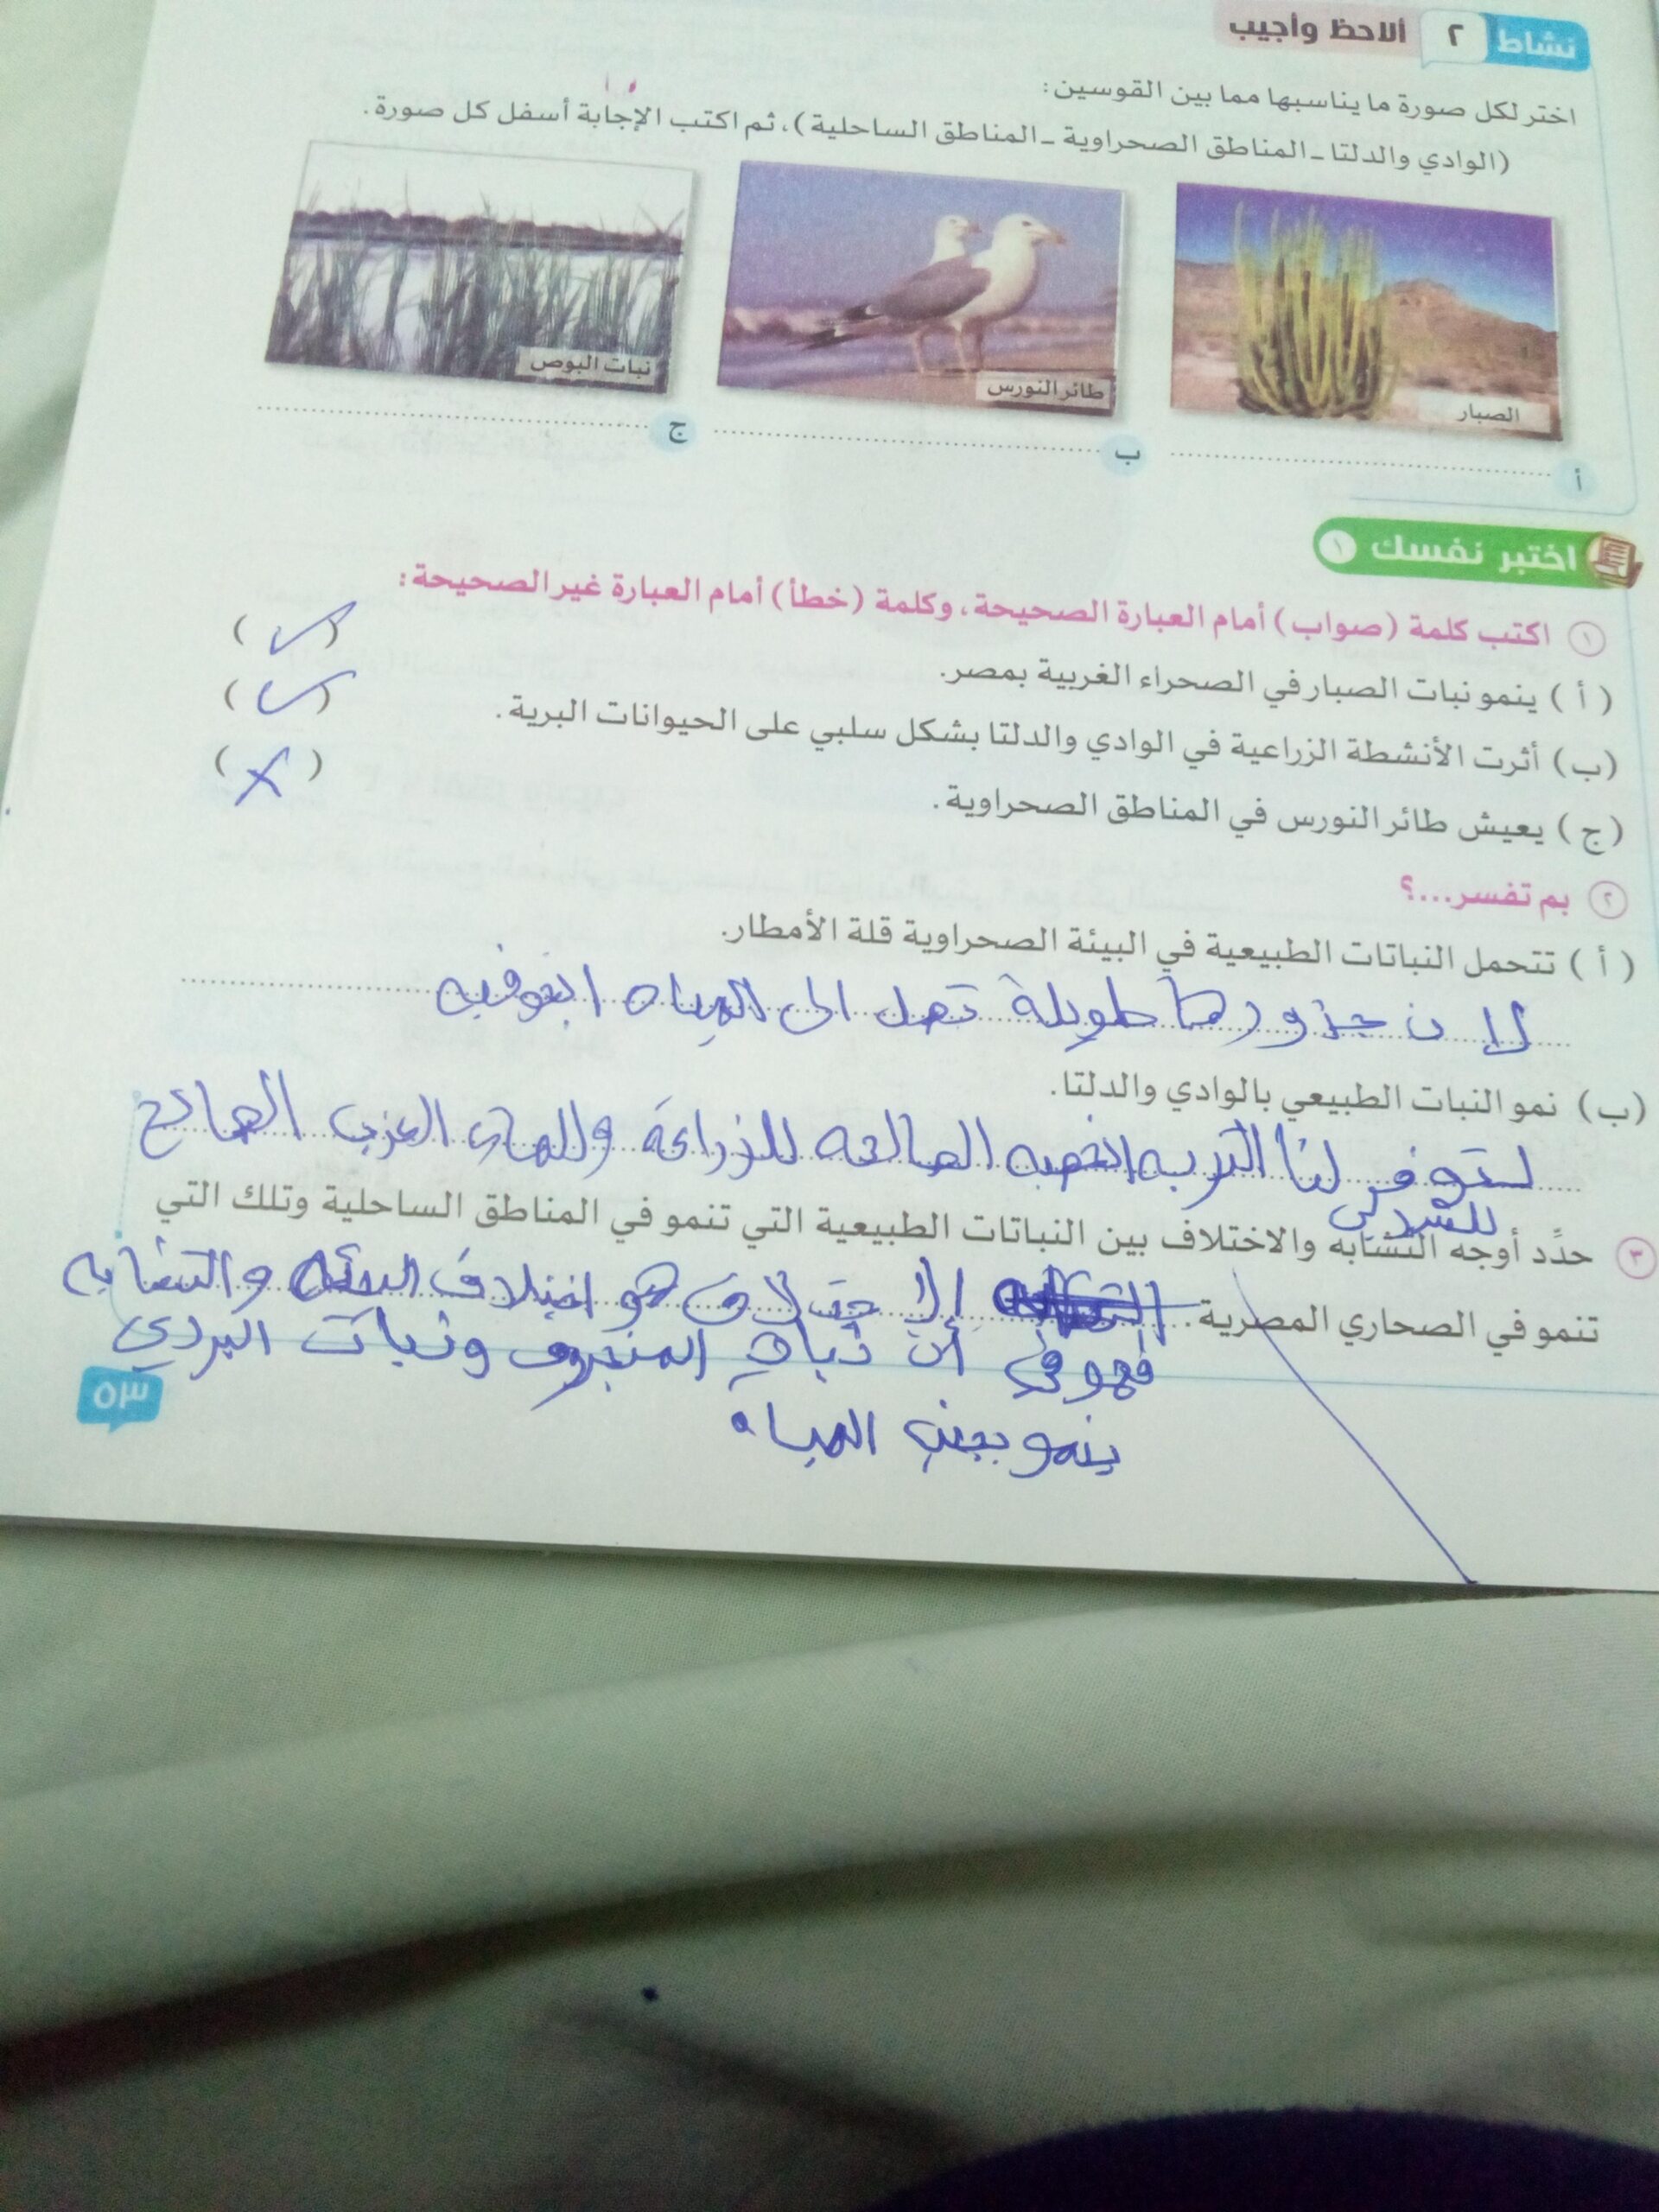 نشاط ٢ ألاحظ وأجيب
اختر لكل صورة ما يناسبها مما بين القوسين:
(الوادي والدلتا - المناطق الصحراوية - المناطق الساحلية)، ثم اكتب الإجابة أسفل كل صورة.
الصبار
طائر النورس
نبات البوص
أ
ب
ج
اختبر نفسك ١
١ اكتب كلمة (صواب) أمام العبارة الصحيحة، وكلمة (خطأ) أمام العبارة غير الصحيحة:
(أ) ينمو نبات الصبار في الصحراء الغربية بمصر. (✓)
(ب) أثرت الأنشطة الزراعية في الوادي والدلتا بشكل سلبي على الحيوانات البرية. (✓)
(ج) يعيش طائر النورس في المناطق الصحراوية. (✗)
٢ بم تفسر...؟
(أ) تتحمل النباتات الطبيعية في البيئة الصحراوية قلة الأمطار.
لإن جزورها طويلة تصل الى المياه الجوفيه
(ب) نمو النبات الطبيعي بالوادي والدلتا.
لتوفر لنا التربه الخصبه الصالحه للزراعة والمياه العزب الصالح
للشرب
٣ حدِّد أوجه التشابه والاختلاف بين النباتات الطبيعية التي تنمو في المناطق الساحلية وتلك التي
تنمو في الصحاري المصرية.
هو اختلاف البيئه والتشابه
فهو في أن نبات المنجروف ونبات البردي
ينمو بجنب المياه
٥٣